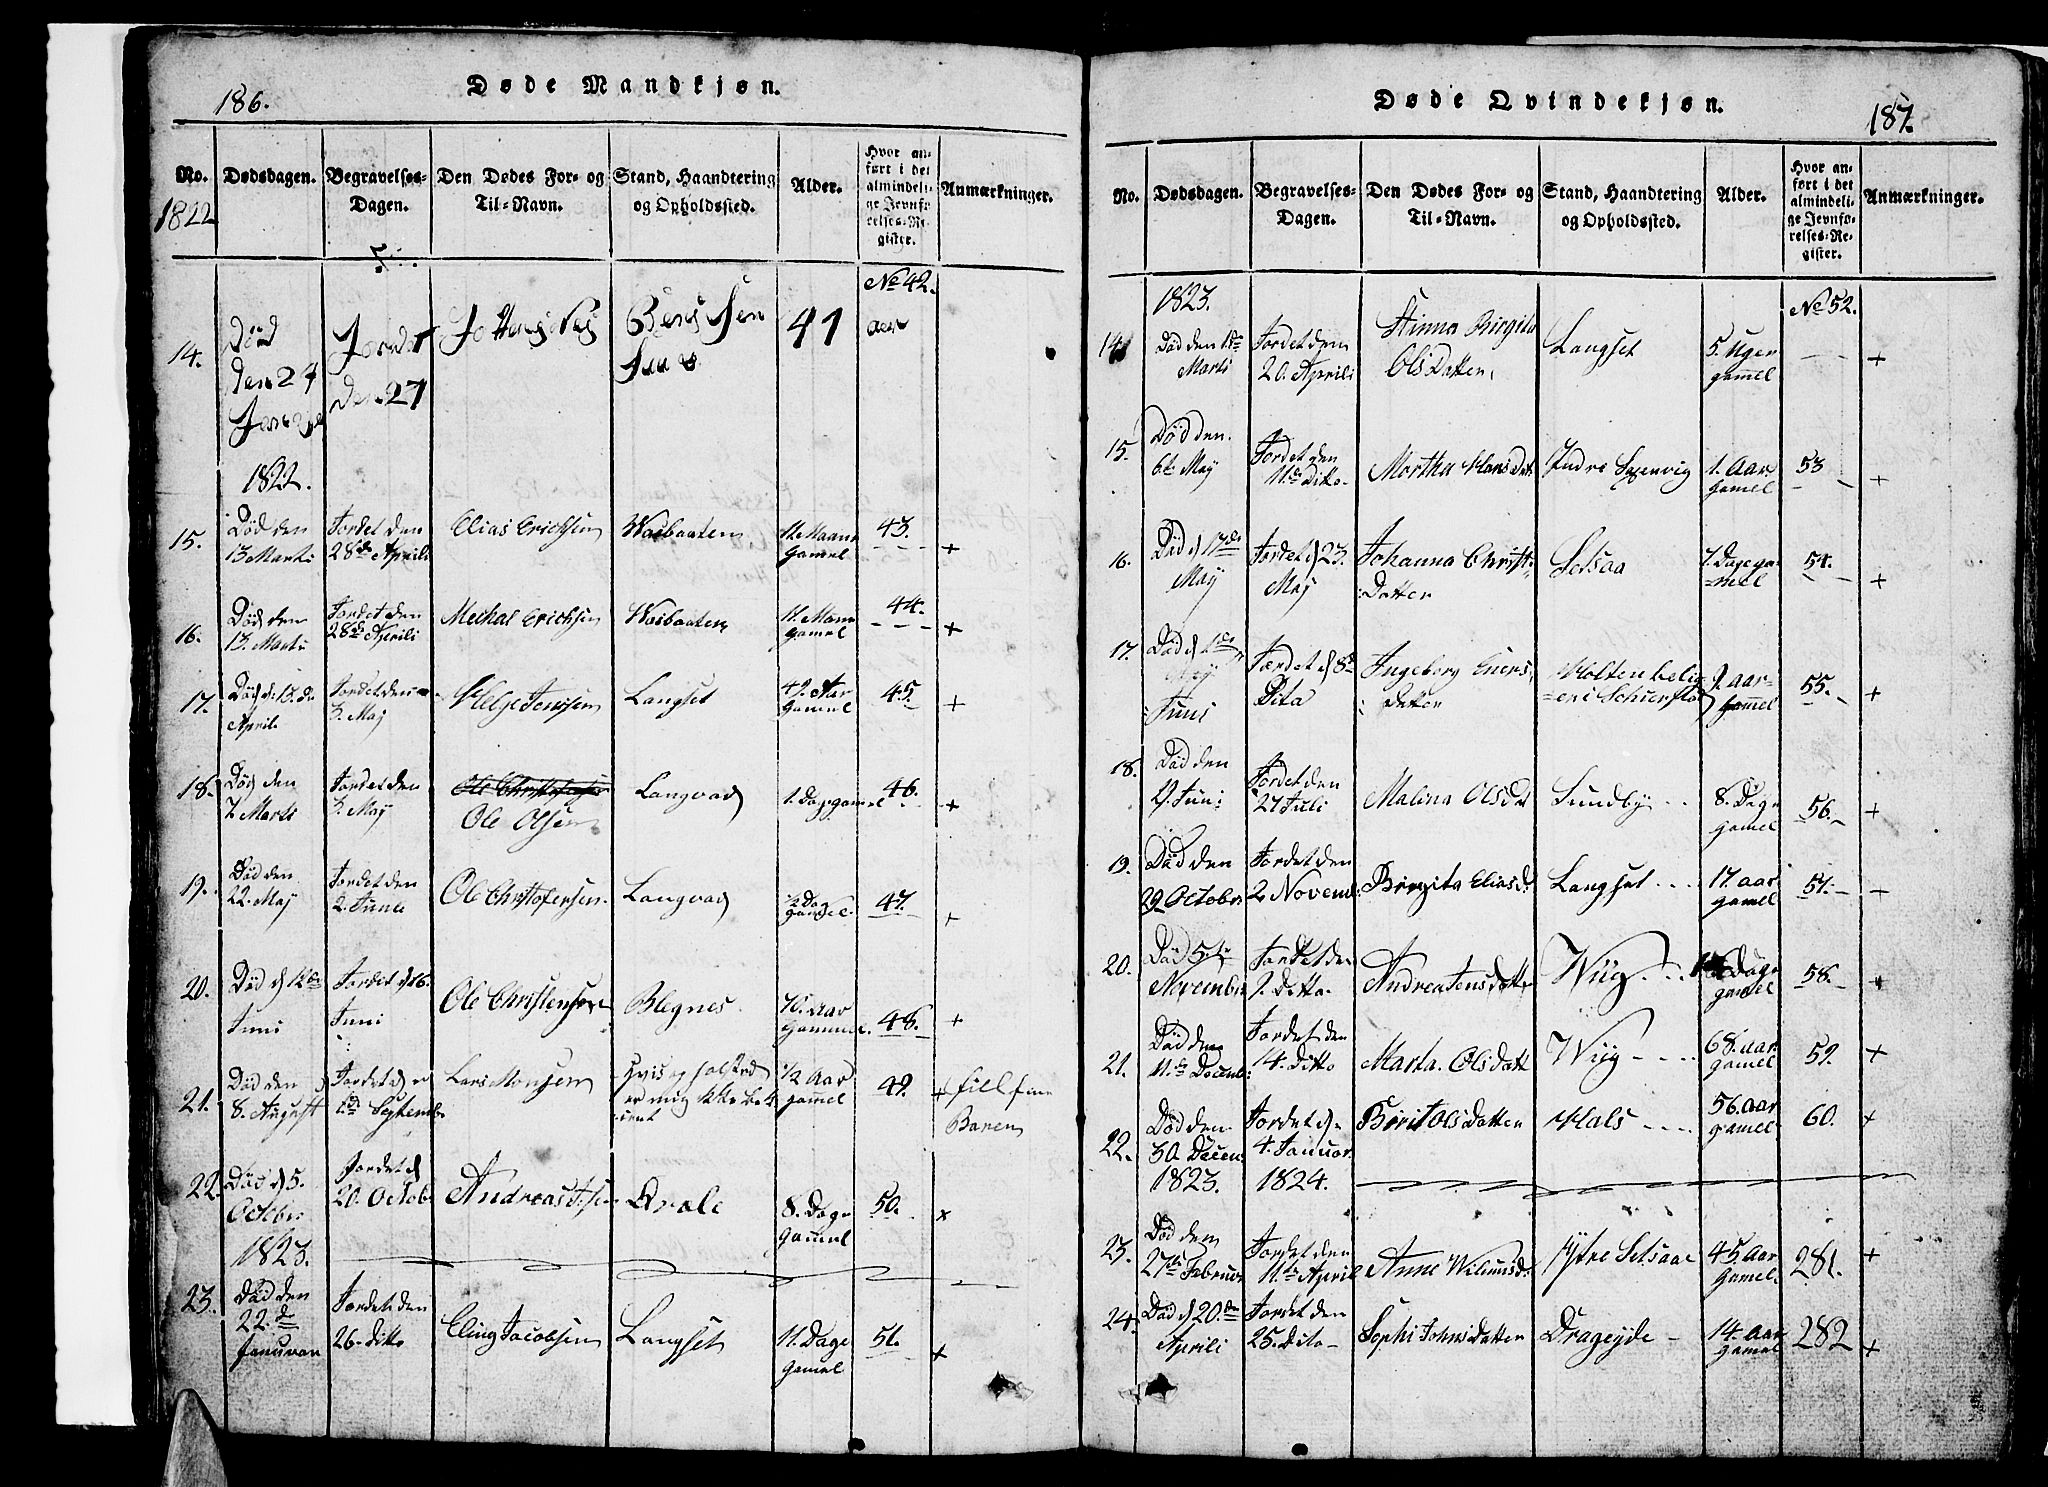 186.
Døde Mandkjøn.
No. Dødsdagen. Begravelses-Dagen. Den Dødes For- og Til-Navn. Stand, Haandtering og Opholdssted. Alder. Hvor anført i det almindelige Jevnførelses-Register. Anmærkninger.
1822
No 42.
14. Død den 24 Jordet den 27 41 aar
1822.
15. Død den 13 Marti Jordet den 28de Aprili Elias Erichsen Wasbaaten 11 Maan gamel 43. +
16. Død den 13. Marti Jordet den 28de Aprili Melkal Erichsen Wasbaaten 11. Maan gamel 44. +
17. Død d. 13.de Aprili Jordet den 3. Maj Helge Jensen Langset 49. Aar gamel 45. +
18. Død den 7 Marti Jordet den 3. May Ole Christofersen Ole Olsen Langvad 1. Dag gamel 46. +
19. Død den 22. Maj Jordet den 2. Junii Ole Christofersen. Langvad ½ Dag gamel. 47. +
20. Død d 12de Juni Jordet d 16. Juni Ole Christensen Blegnes. 70. aar gammel. 48. +
21. Død den 8. August Jordet d. 1de Septembr Lars Monsen er mig ikke be kient 1/2 Aar gammel 49. + Baren
22. Død d 5. October Jordet d 20. Octob. Andreas Qvale 8. Dage gamel 50. x
1823.
23. Død den 22.de Januvar Jordet den 26. ditto Eling Jacobsen Langset 11. Dage gamel 51. +
187.
Døde Qvindekjøn.
No. Dødsdagen. Begravelses-Dagen. Den Dødes For- og Til-Navn. Stand, Haandtering og Opholdssted. Alder. Hvor anført i det almindelige Jevnførelses-Register. Anmærkninger.
1823. No 52.
14. Død den 1de Marti Jordet den 20. Aprili Stinna Birgita Olsdatter, Langset 5. Uger gamel +
15. Død den. 6te May Jordet den 11.te Ditto Mortha Hansdat Indre 1. Aar. gamel 53 +
16. Død d 17de May Jordet d 23. Maj Johanna Christ: Datter Setsaa 7. Dage gamel 54. +
17. Død d 1de Juni Jordet d 8de Dita Ingeborg Eners: datter 9. aar gammel 55. +
18. Død den 19. Juni Jordet den 27 Juli Malina Olsdat Sundby 8. Dage gamel 56. +
19. Død den 29 October Jordet den 2 Novemb. Birgita Eliasd. Langset 17. aar gamel 57. +
20. Død 5te Novembr Jordet den 9. Ditto. Andrea Jensdatter Wiig Dage gamel 58. +
21. Død den 11.te Decemb: Jordet den 14. Ditto Marta. Olsdatt Wiig 68. aar. gamel 59. +
22. Død den 30. Decem. 1823. Jordet d. 4. Januar. 1824. Birit Olsdatter Hals 56. aar gamel 60. +
23. Død den 27de Februar Jordet den 11.te Aprili Anne Wilumsd. Ytre Setsaae 45. aar gamel. 281. +
24. Død d 20.de Aprili Jordet den 25. Dito Sophi Johnsdatter Drageyde 14. aar gamel 282 +